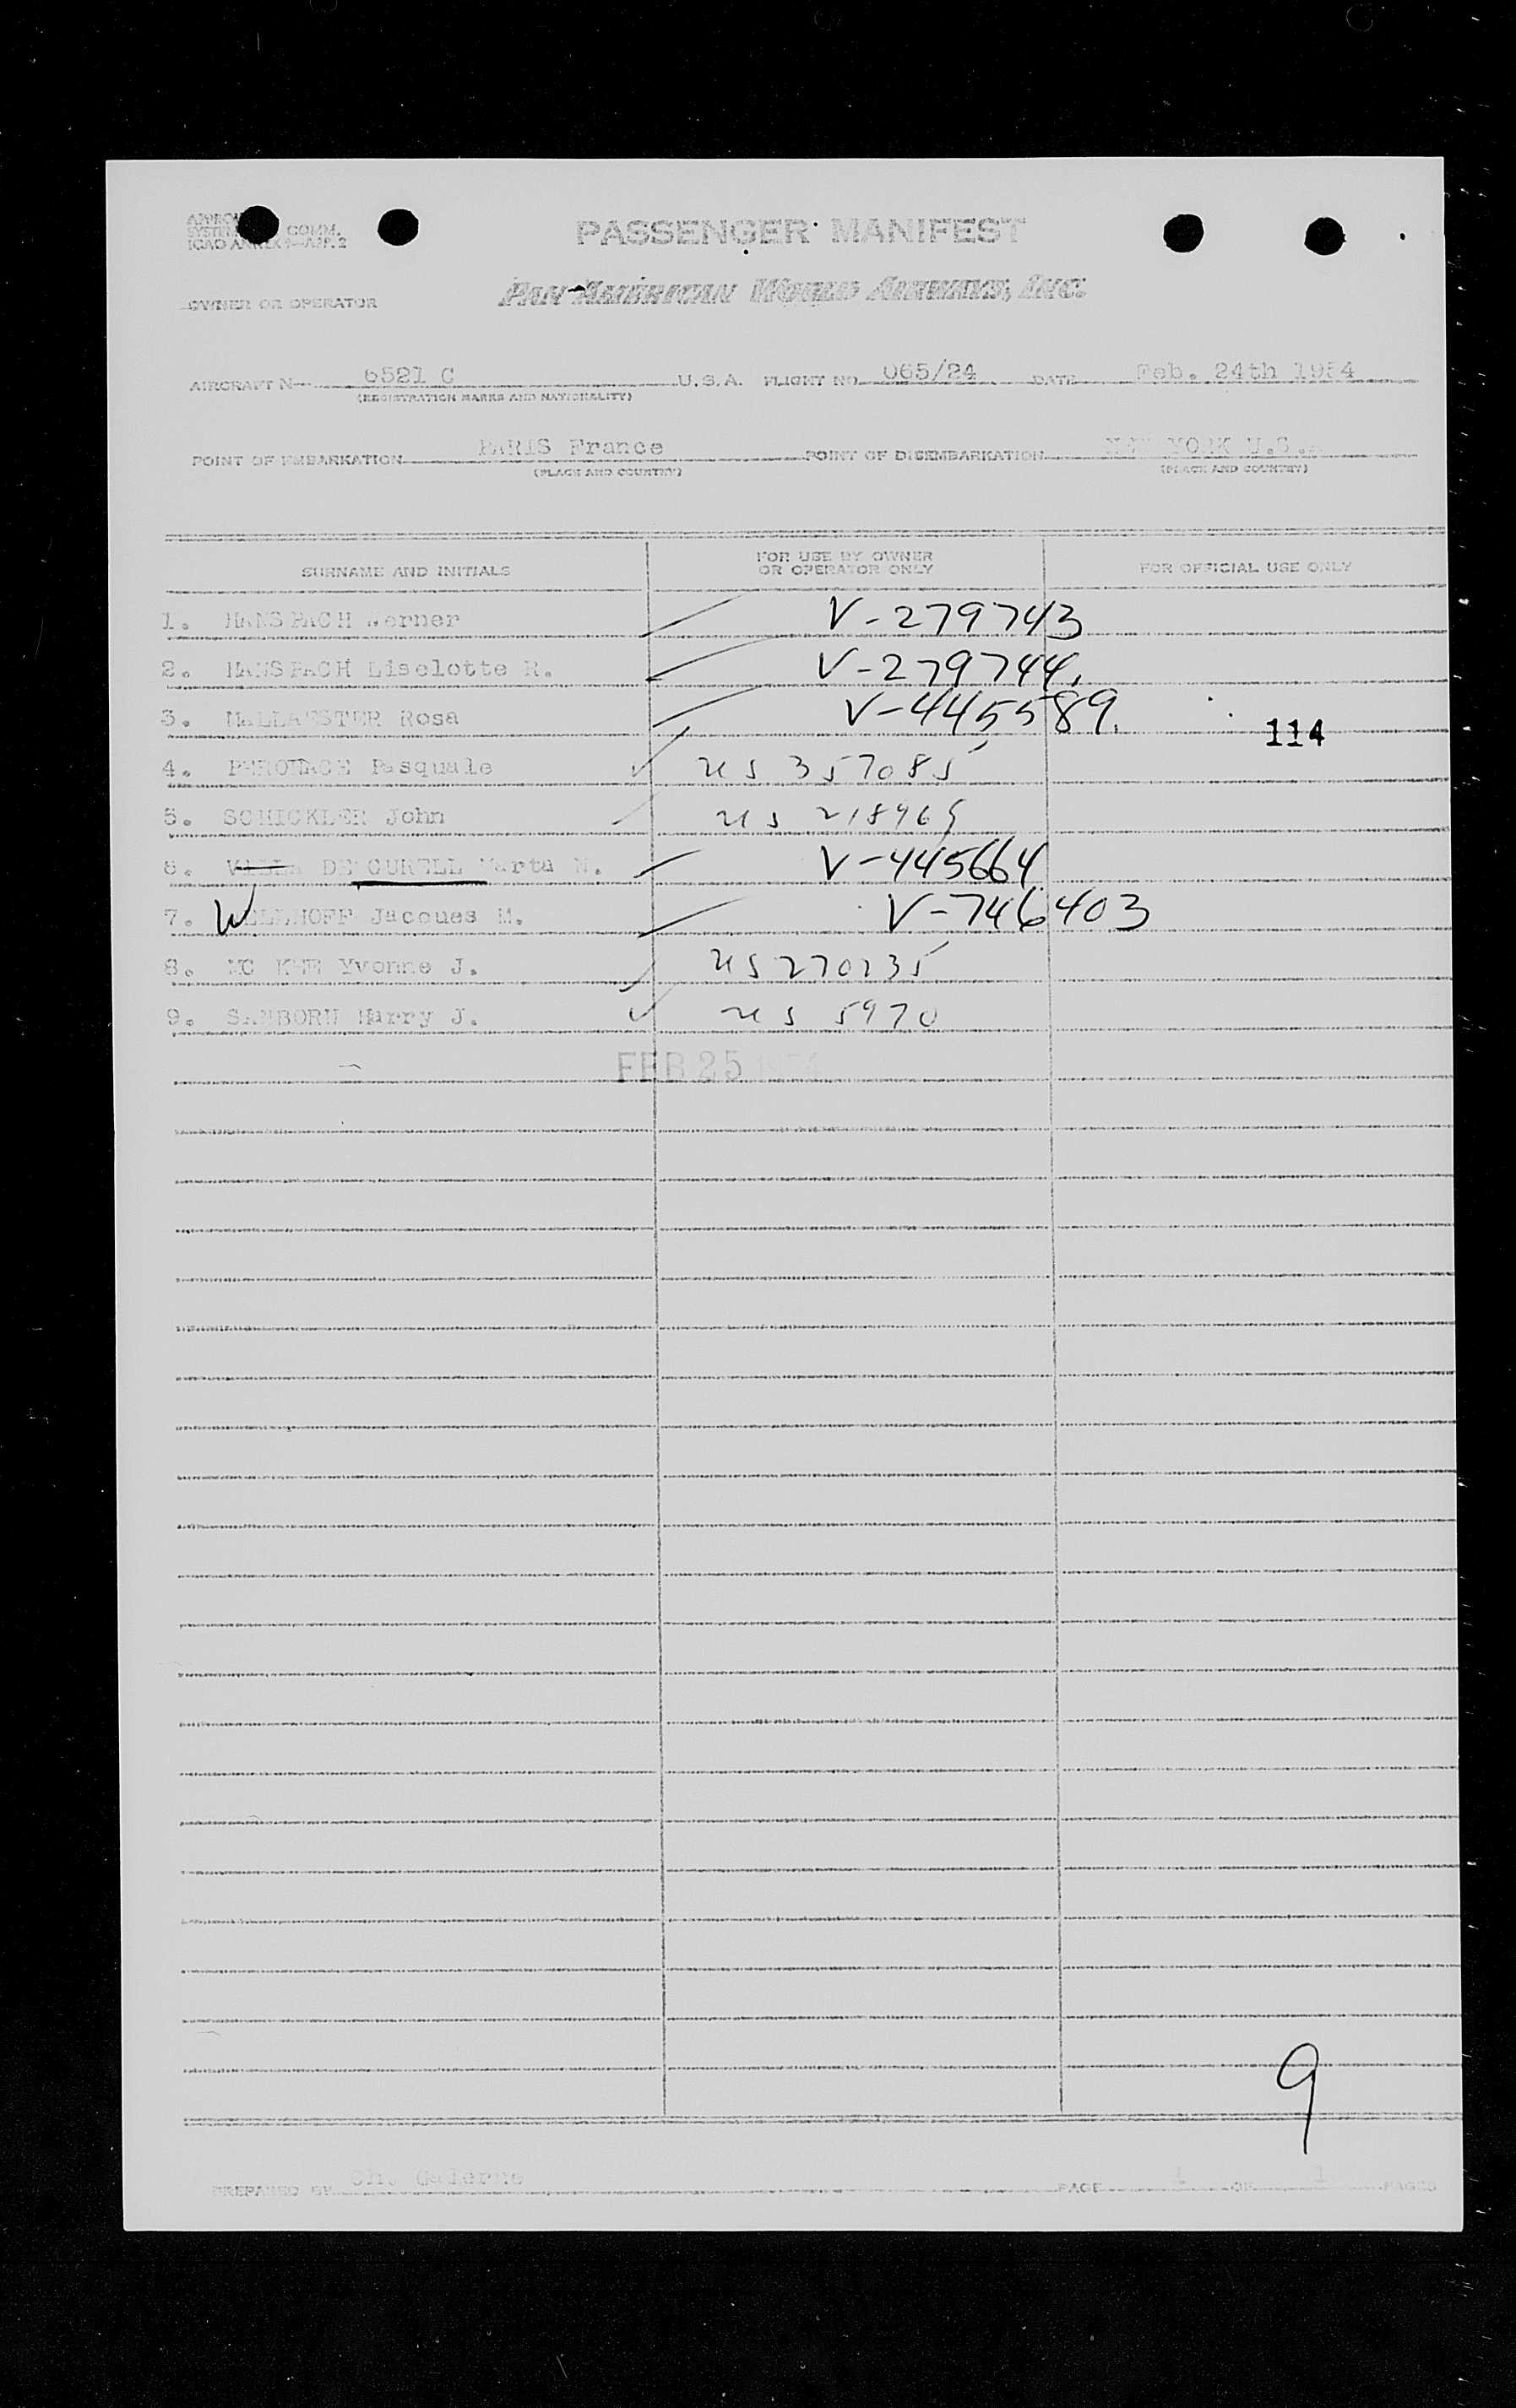 COMM.
ICAO ANNEX 9—APP. 2
PASSENGER MANIFEST
PAN AMERICAN WORLD AIRWAYS, INC.
OWNER OR OPERATOR
AIRCRAFT N— 6521 C U.S.A. FLIGHT NO. 065/24 DATE Feb. 24th 1954
(REGISTRATION MARKS AND NATIONALITY)
POINT OF EMBARKATION PARIS France POINT OF DISEMBARKATION NEW YORK U.S.A
(PLACE AND COUNTRY) (PLACE AND COUNTRY)
SURNAME AND INITIALS FOR USE BY OWNER OR OPERATOR ONLY FOR OFFICIAL USE ONLY
1. Werner V-279743
2. Liselotte R. V-279744.
3. Rosa V-445589.
114
4. Pasquale US 357085
5. SCHICKLER John US 218969
6. DE CURELL Marta N. V-445664
7. Jacques M. V-746403
8. MC KEE Yvonne J. US 270235
9. SANBORN Harry J. US 5970
FEB 25 1954
9
PREPARED BY PAGE 1 OF 1 PAGES